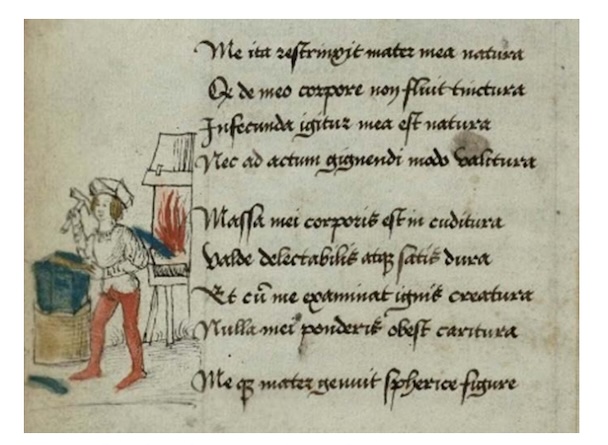 Me ita restringit mater mea natura
Qz de meo corpore non fluit tinctura
Infecunda igitur mea est natura
Nec ad actum gignendi modo valitura
Massa mei corporis est in cuditura
Valde delectabilis atqz satis dura
Et cū me examinat ignis creatura
Nulla mei ponderis obest caritura
Me qz mater genuit spherice figure